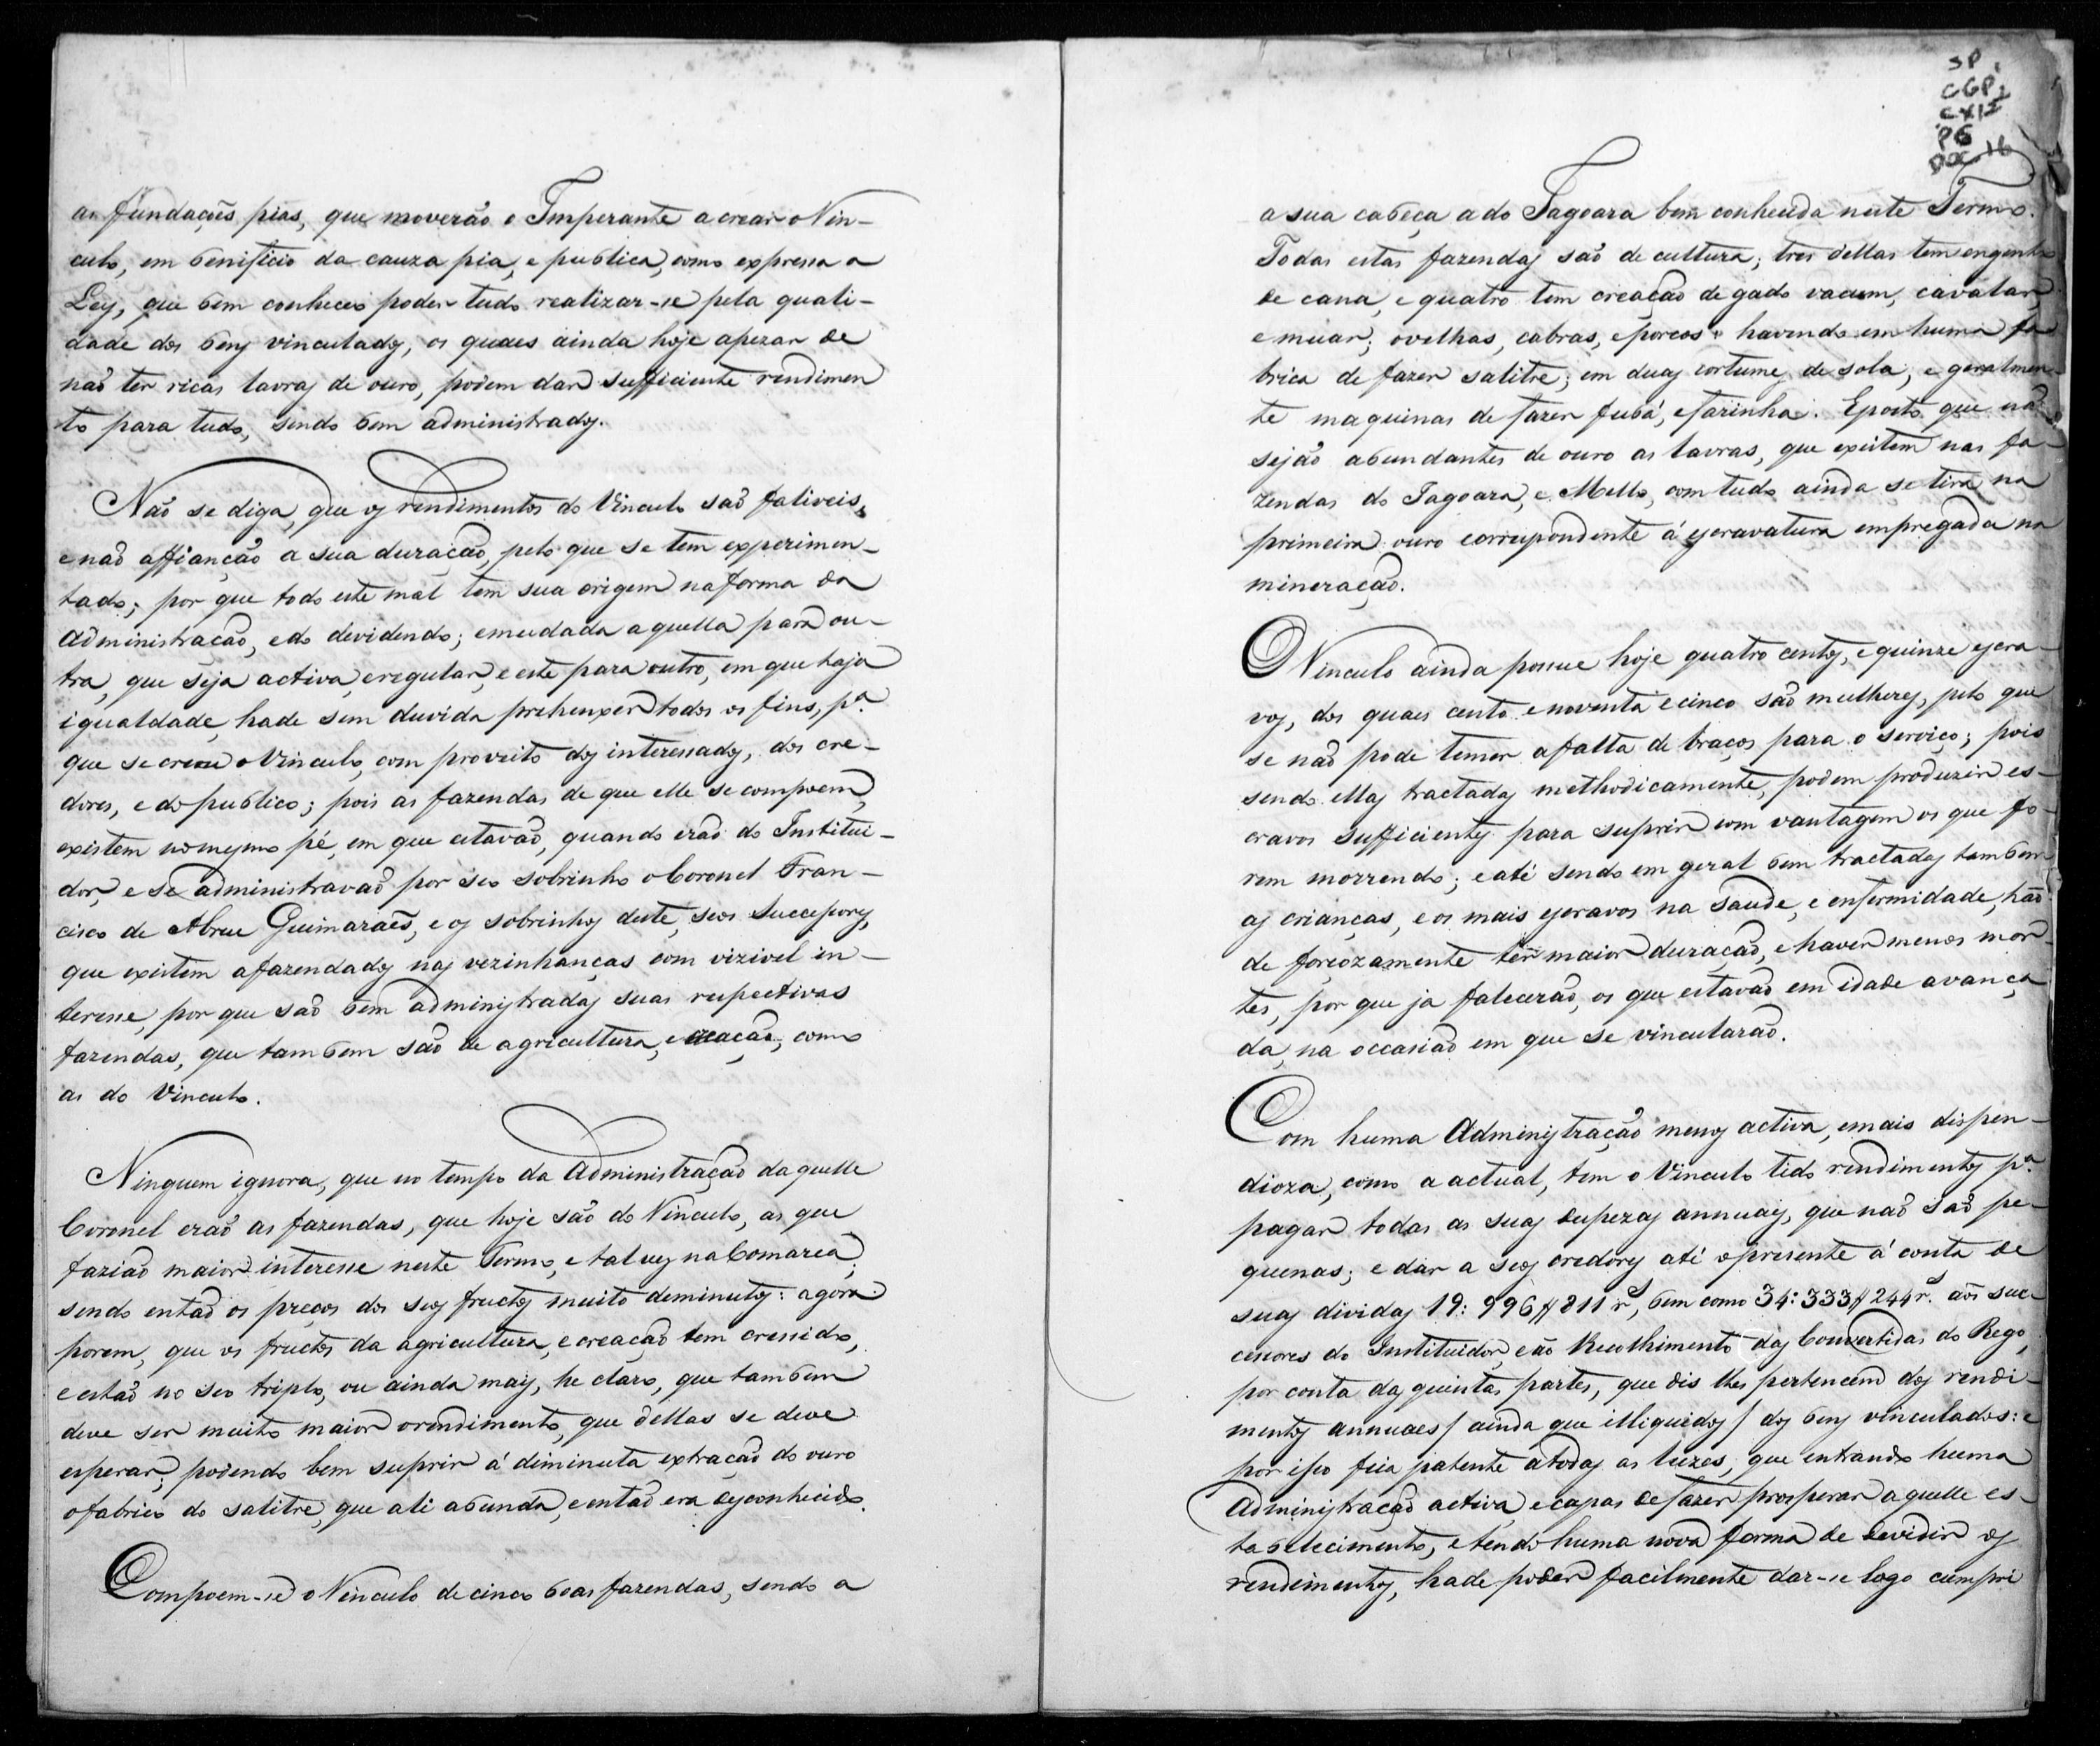 as fundações pias, que moverão o Imperante a crear o Vin-
culo, em benificio da cauza pia, e publica, como expressa a
Ley, que bem conheceo poder tudo realizar-se pela quali-
dade dos bens vinculados, os quaes ainda hoje apezar de
não ter ricas lavras de ouro, podem dar sufficiente rendimen
to para tudo, sendo bem administrados.
Não se diga, que os rendimentos do Vinculo são faliveis,
e não affianção a sua duração, pelo que se tem experimen-
tado; por que todo este mal tem sua origem na forma da
Administração, e do devidendo; e mudada aquella para ou-
tra, que seja activa, e regular, e este para outro, em que haja
igualdade, hade sem duvida prehenxer todos os fins, pª.
que se creou o Vinculo, com proveito dos interessados, dos cre-
dores, e do publico; pois as fazendas de que elle se compoem,
existem no mesmo pé, em que estavão, quando erão do Institui-
dor, e se administravão por seo sobrinho o Coronel Fran-
cisco de Abreu Guimaraẽs, e os sobrinhos deste, seos Successores,
que existem afazendados nas vezinhanças com vizivel in-
teresse, por que são bem administradas suas respectivas
fazendas, que tambem são de agricultura, e creação, como
as do Vinculo.
Ninguem ignora, que no tempo da Administração daquelle
Coronel erão as fazendas, que hoje são do Vinculo, as que
fazião maior interesse neste Termo, e talves na Comarca,
sendo então os preços dos seos fructos muito deminutos: agora
porem, que os fructos da agricultura, e creação tem crescido,
e estão no seo triplo, ou ainda mais, he claro, que tambem
deve ser muito maior o rendimento, que dellas se deve
esperar, podendo bem suprir á diminuta extração do ouro
o fabrico do salitre, que ali abunda, e então era desconhecido.
Compoem-se o Vinculo de cinco boas fazendas, sendo a
SP
CGP1
CX12
P6
DOC. 16
a sua cabeça a do Jagoara bem conhecida neste Termo.
Todas estas fazendas são de cultura; tres dellas tem engenho
de cana, e quatro tem creação de gado vacum, cavalar,
e muar; ovelhas, cabras, e porcos: havendo em huma fa
brica de fazer salitre; em duas cortumes de sola, e geralmen-
te maquinas de fazer fubá, e farinha. E posto que não
sejão abundantes de ouro as lavras, que existem nas fa-
zendas do Jagoara, e Mello, com tudo ainda se tira na
primeira ouro correspondente á escravatura empregada na
mineração.
O Vinculo ainda possue hoje quatro centos, e quinze escra-
vos, dos quaes cento e noventa e cinco são mulheres, pelo que
se não pode temer a falta de braços para o serviço; pois
sendo ellas tractadas methodicamente, podem produzir es-
cravos sufficientes para suprir com vantagem os que fo-
rem morrendo; e até sendo em geral bem tractadas tambem
as crianças, e os mais escravos na saude, e enfermidade, hão
de forçozamente ter maior duração, e haver menos mor-
tes, por que ja falecerão, os que estavão em idade avança
da, na occasião em que se vincularão.
Com huma Administração menos activa, e mais dispen-
dioza, como a actual, tem o Vinculo tido rendimentos pª.
pagar todas as suas despezas annuaes, que não são pe-
quenas; e dar a seos credores até o presente á conta de
suas dividas 19: 996$811 rs, bem como 34: 333$244 rs. aos suc-
cessores do Instituidor, e ao Recolhimento das Convertidas do Rego,
por conta das quintas partes, que dis lhes pertencem dos rendi-
mentos annuaes/ ainda que illiquidos/ dos bens vinculados: e
por isso fica patente a todas as luzes, que entrando huma
Administração activa, e capas de fazer prosperar aquelle es-
tabelecimento, e tendo huma nova forma de devidir os
rendimentos, hade poder facilmente dar-se logo cumpri